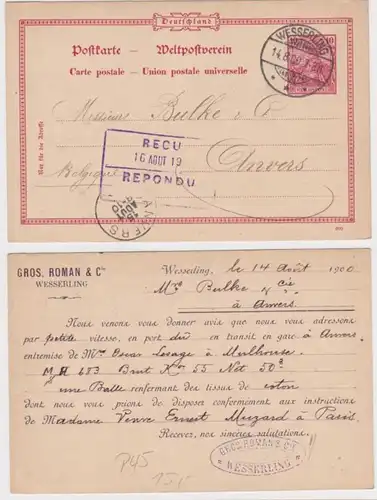 Deutschland
Postkarte — Weltpostverein
Carte postale — Union postale universelle
10
WESSERLING
Messieurs Bulke & Cie
Anvers
Belgique
Nur für die Adresse
RECU
16 AOUT 19
REPONDU
ANVERS
GROS, ROMAN & Cie
WESSERLING
Wesserling, le 14 Août 1900
Mrs Bulke & Cie
à Anvers
Nous venons vous donner avis que nous vous adressons
par petite vitesse, en port dû en transit en gare à Anvers
entremise de Mr Oscar Lesage à Mulhouse.
483 Brut Ko 55 Net 50
une Balle renfermant des tissus de coton
dont nous vous prions de disposer conformément aux instructions
de Madame Veuve Ernest Muzard à Paris
Recevez, nos sincères salutations.
GROS ROMAN & Cie
WESSERLING
P45